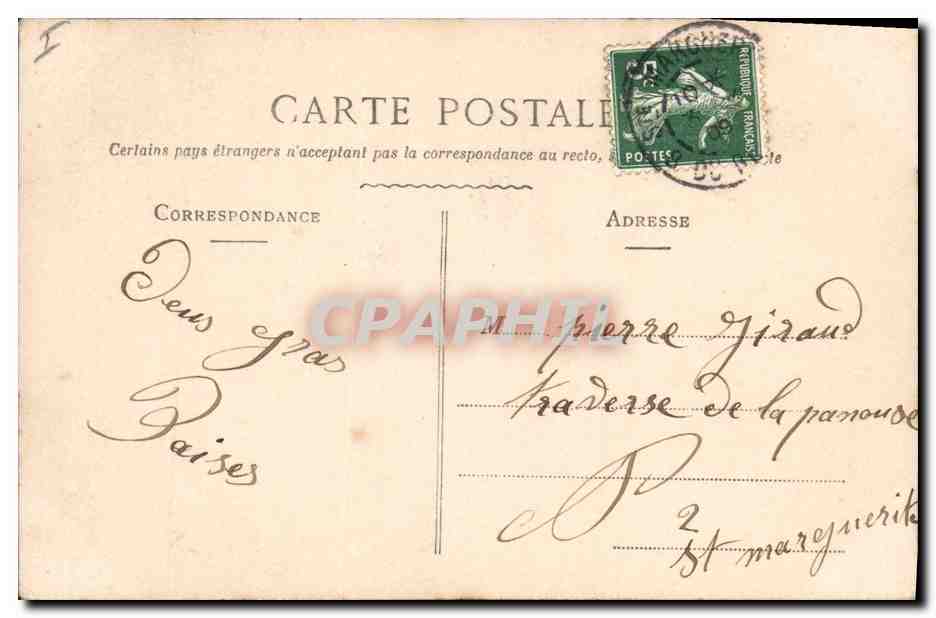 I
CARTE POSTALE
Certains pays étrangers n'acceptant pas la correspondance au recto,
REPUBLIQUE FRANÇAISE
5
POSTES
10
09
BS DU RH
CORRESPONDANCE
Deus gras
Baises
ADRESSE
M pierre Giraud
traverse de la panouse
2
St marguerite
CPAPHIL